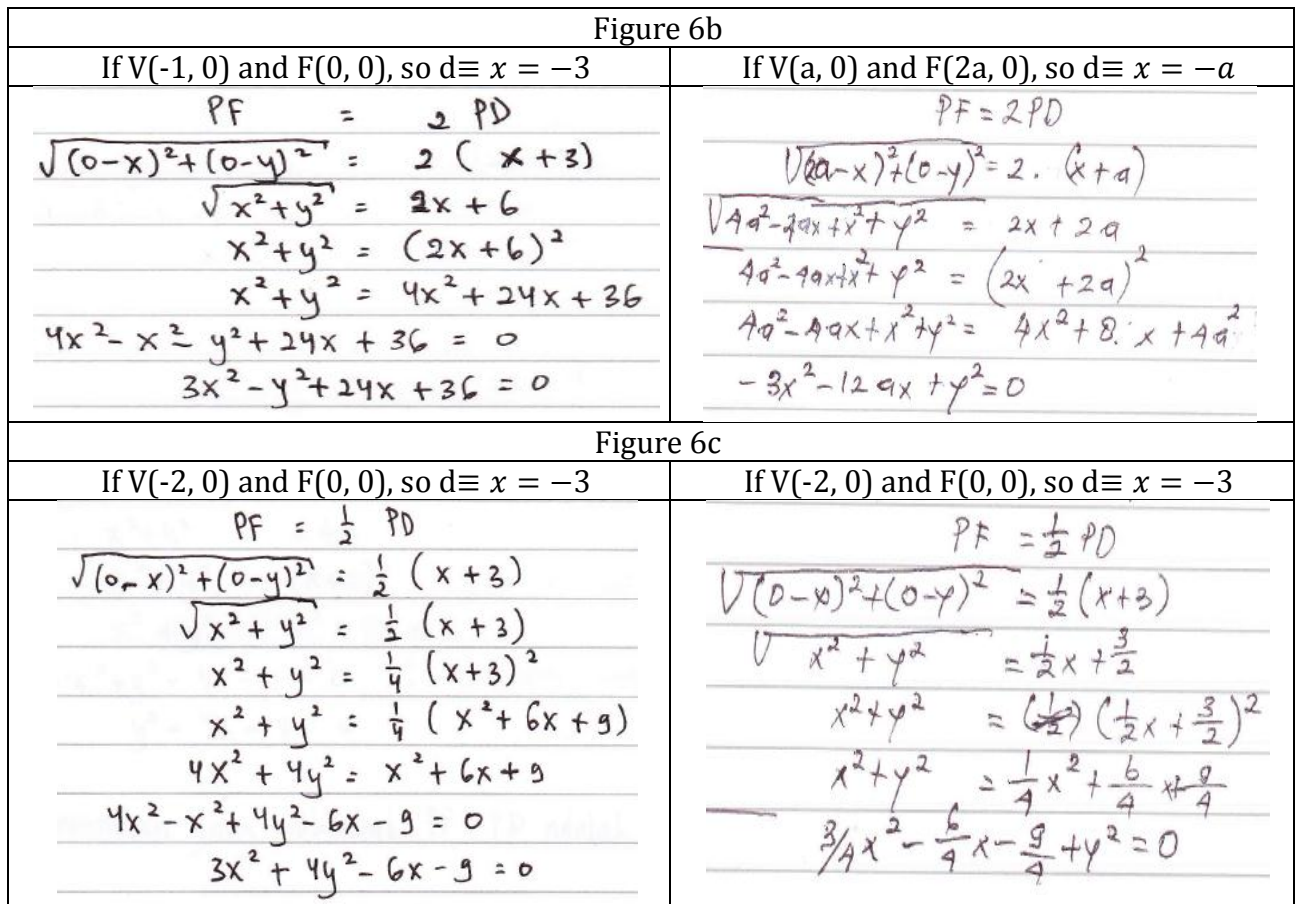 Figure 6b
If V(-1, 0) and F(0, 0), so d≡ 𝑥 = −3
PF = 2 PD
√(0-x)²+(0-y)² = 2 ( x+3)
√x²+y² = 2x + 6
x²+y² = (2x+6)²
x²+y² = 4x²+24x+36
4x²- x²- y²+24x+36 = 0
3x²-y²+24x+36 = 0
If V(a, 0) and F(2a, 0), so d≡ 𝑥 = −𝑎
PF = 2PD
√(2a-x)²+(0-y)² = 2. (x+a)
√4a²-4ax+x²+y² = 2x + 2a
4a²-4ax+x²+y² = (2x +2a)²
4a²-4ax+x²+y² = 4x²+8. x +4a²
-3x²-12ax+y²=0
Figure 6c
If V(-2, 0) and F(0, 0), so d≡ 𝑥 = −3
PF = ½ PD
√(0-x)²+(0-y)² = ½ (x+3)
√x²+y² = ½ (x+3)
x²+y² = ¼ (x+3)²
x²+y² = ¼ (x²+6x+9)
4x²+4y² = x²+6x+9
4x²-x²+4y²-6x-9 = 0
3x²+4y²-6x-9 = 0
If V(-2, 0) and F(0, 0), so d≡ 𝑥 = −3
PF = ½ PD
√(0-x)²+(0-y)² = ½ (x+3)
√x²+y² = ½x + 3/2
x²+y² = (½x + 3/2)²
x²+y² = ¼x² + 6/4 x + 9/4
3/4x² - 6/4x - 9/4 + y² = 0